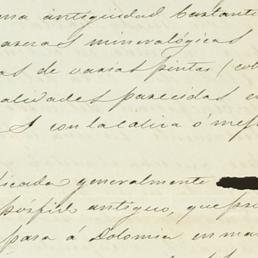 una antigüedad bastante
mineralógicas
as de varias pintas (cob
alidades parecidas e
S con la caliza ó mej
icada generalmente
pórfido antiguo, que pre
pasa á Dolomia en ma